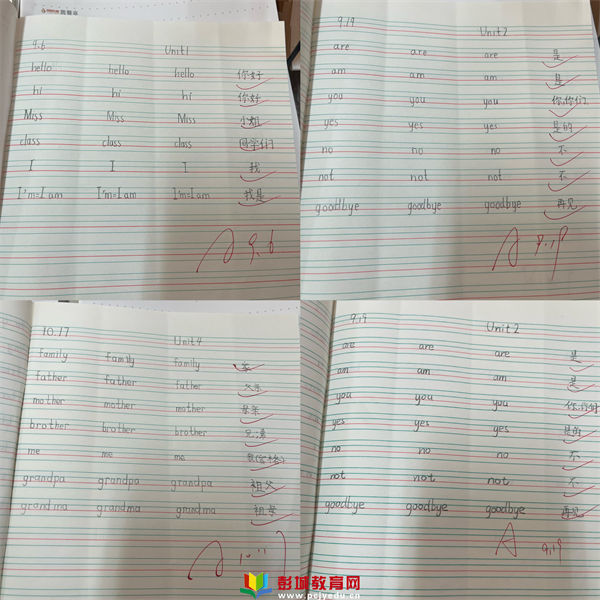 9.6
Unit1
hello hello hello 你好
hi hi hi 你好
Miss Miss Miss 小姐
class class class 同学们
I I I 我
I'm=I am I'm=I am I'm=I am 我是
A 9.6
9.19
Unit2
are are are 是
am am am 是
you you you 你,你们
yes yes yes 是的
no no no 不
not not not 不
goodbye goodbye goodbye 再见
A 9.19
10.17
Unit4
family family family 家
father father father 父亲
mother mother mother 母亲
brother brother brother 兄弟
me me me
grandpa grandpa grandpa 祖父
grandma grandma grandma 祖母
A
9.19
Unit2
are are are 是
am am am 是
you you you 你,你们
yes yes yes 是的
no no no 不
not not not 不
goodbye goodbye goodbye 再见
A 9.19
彭城教育网
www.pcjyedu.cn